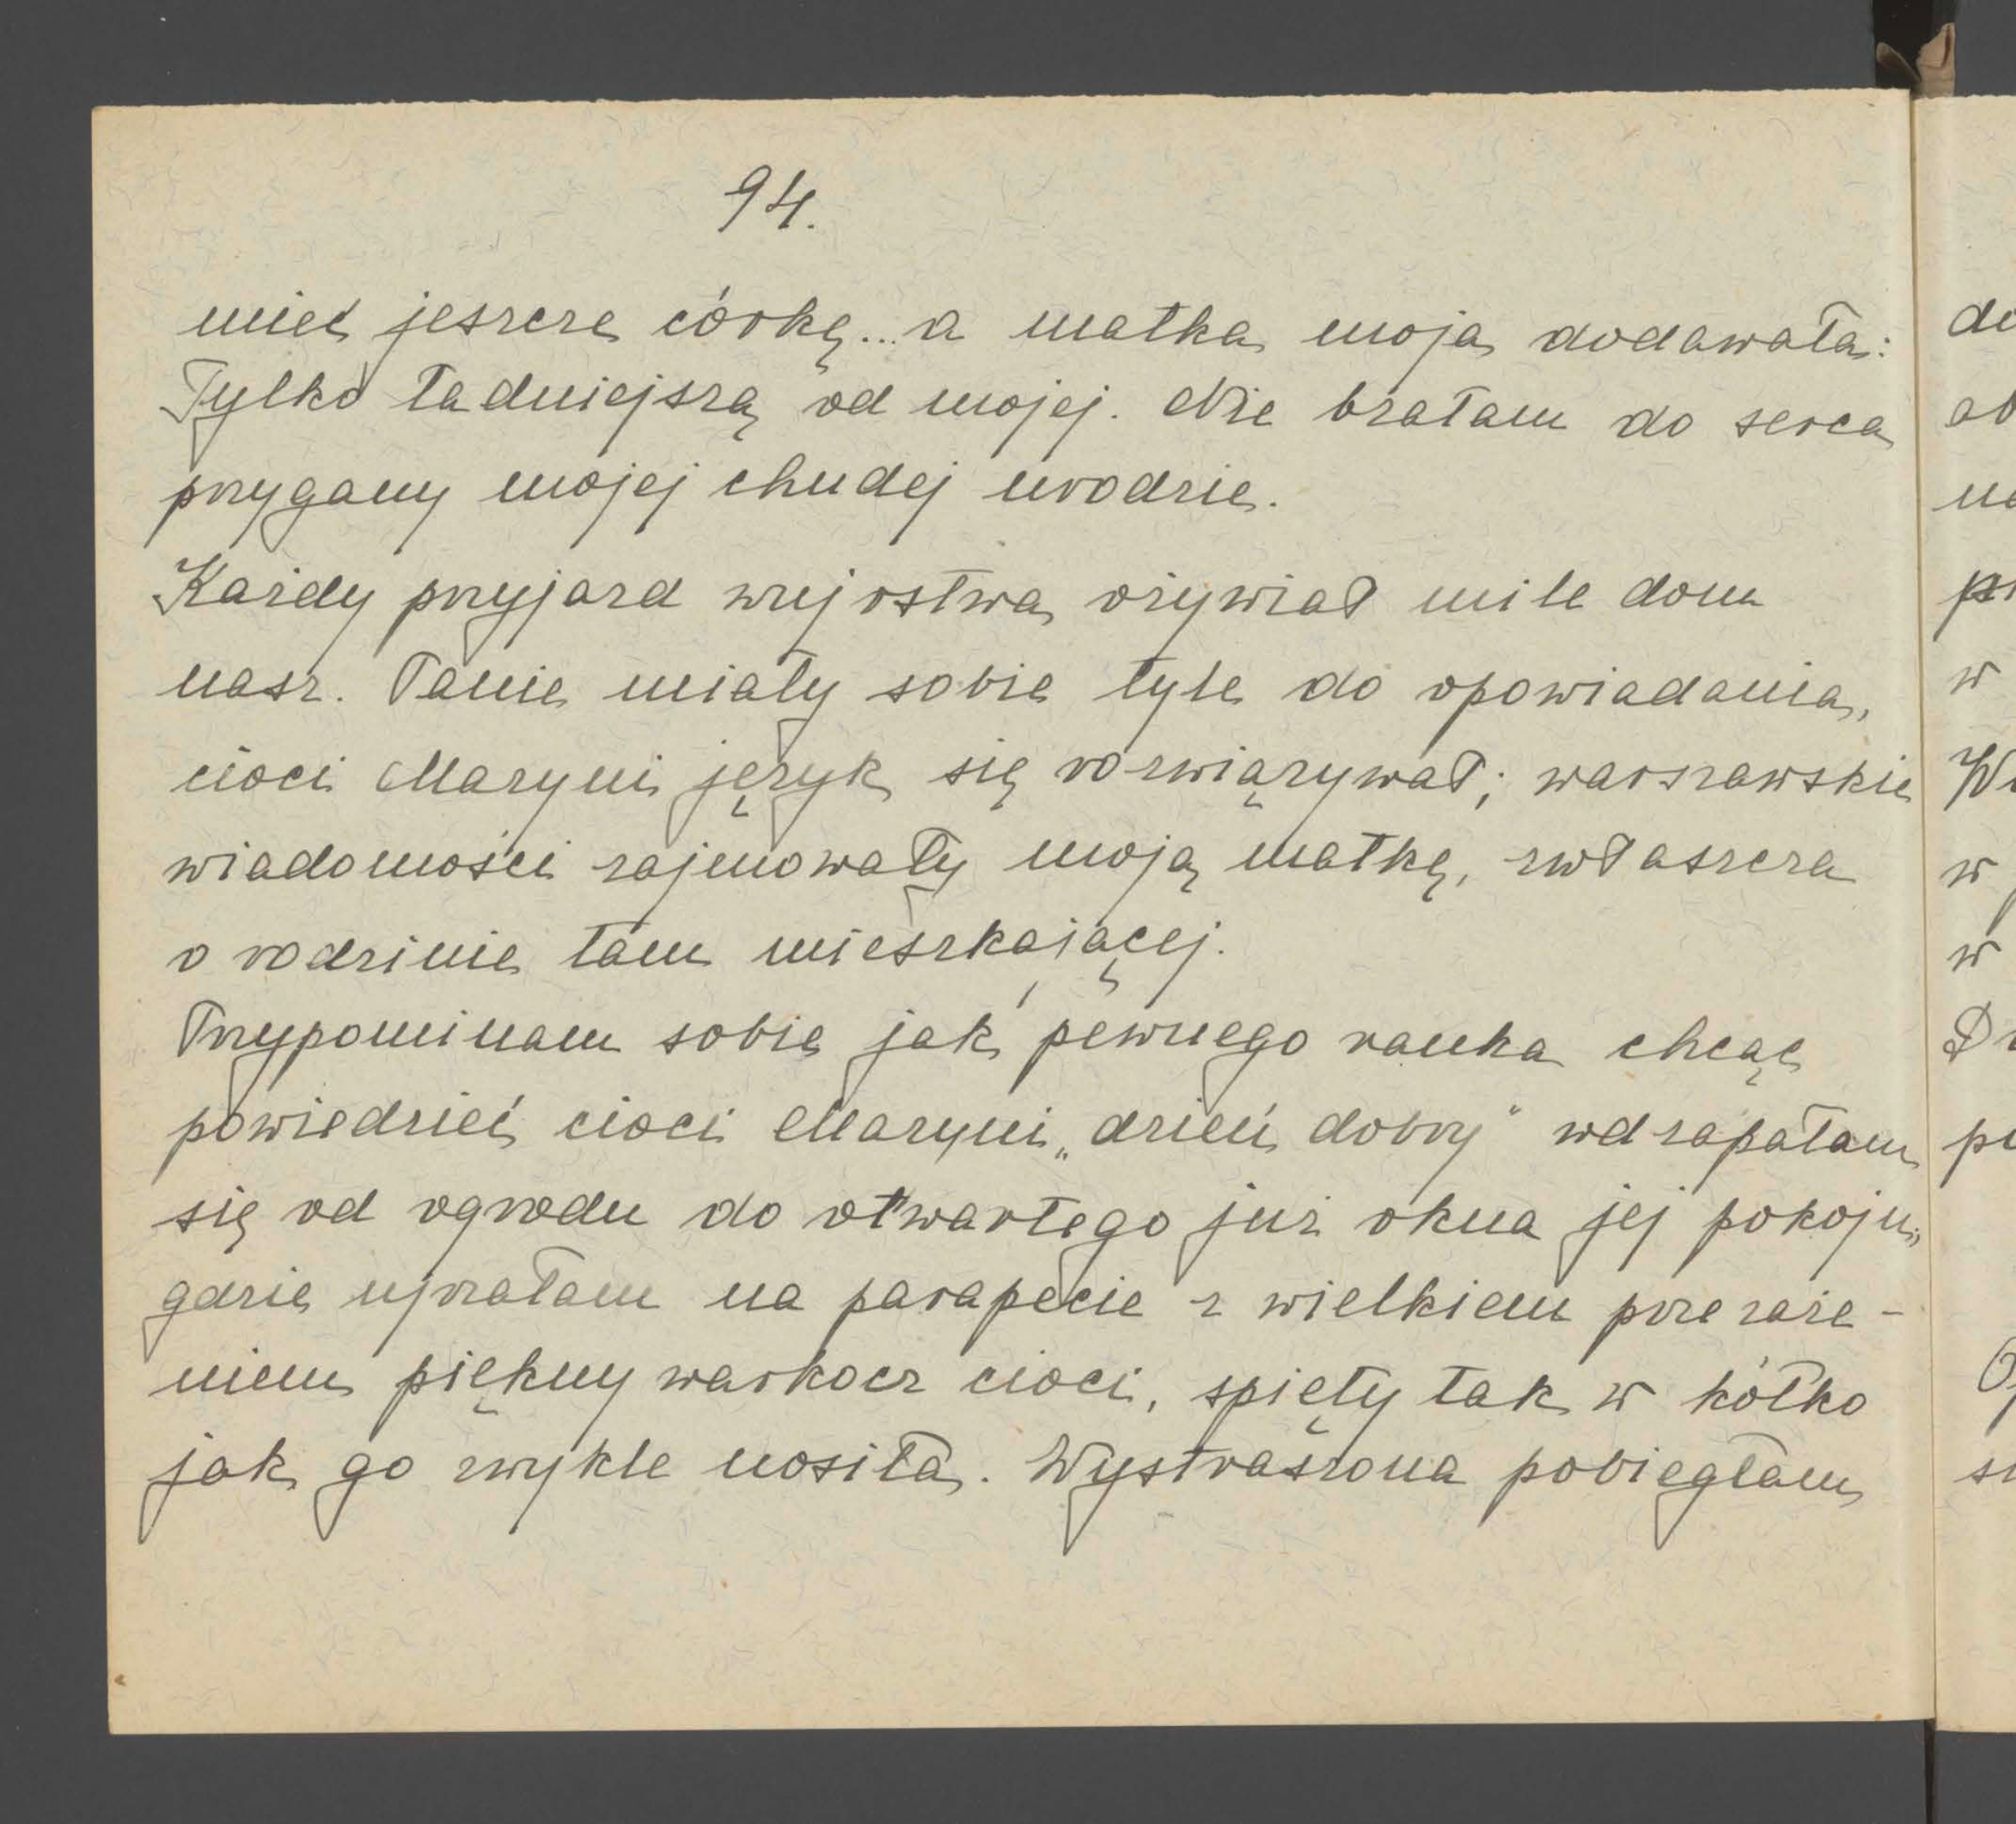 94.
mieć jeszcze córkę... a matka moja dodawała:
Tylko ładniejszą od mojej. Nie brałam do serca
przygany mojej chudej urodzie.
Każdy przyjazd wujostwa ożywiał mile dom
nasz. Panie miały sobie tyle do opowiadania,
cioci Maryni język się rozwiązywał; warszawskie
wiadomości zajmowały moją matkę, zwłaszcza
o rodzinie tam mieszkającej.
Przypominam sobie jak pewnego ranka chcąc
powiedzieć cioci Maryni „dzień dobry" wdrapałam
się od ogrodu do otwartego już okna jej pokoju,
gdzie ujrzałam na parapecie z wielkiem przeraże-
niem piękny warkocz cioci, spięty tak w kółko
jak go zwykle nosiła. Wystraszona pobiegłam